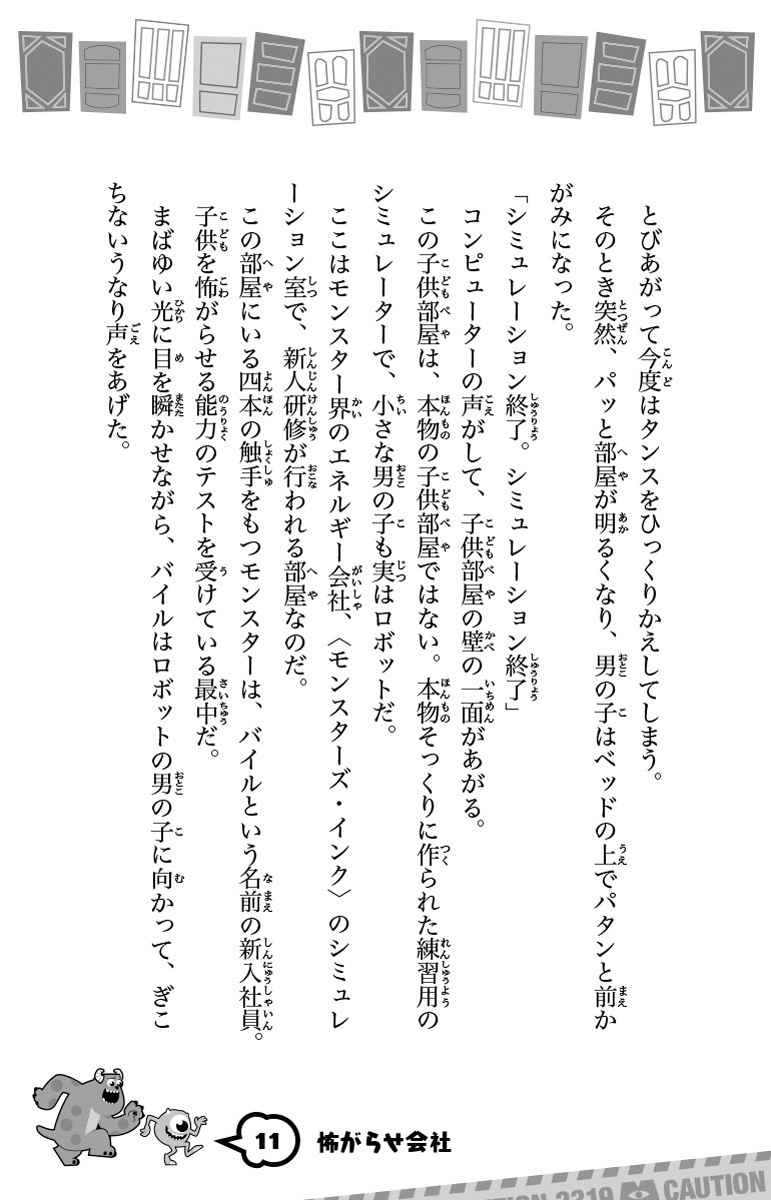 とびあがって今度はタンスをひっくりかえしてしまう。
そのとき突然、パッと部屋が明るくなり、男の子はベッドの上でパタンと前か
がみになった。
「シミュレーション終了。シミュレーション終了」
コンピューターの声がして、子供部屋の壁の一面があがる。
この子供部屋は、本物の子供部屋ではない。本物そっくりに作られた練習用の
シミュレーターで、小さな男の子も実はロボットだ。
ここはモンスター界のエネルギー会社、〈モンスターズ・インク〉のシミュレ
ーション室で、新人研修が行われる部屋なのだ。
この部屋にいる四本の触手をもつモンスターは、バイルという名前の新入社員。
子供を怖がらせる能力のテストを受けている最中だ。
まばゆい光に目を瞬かせながら、バイルはロボットの男の子に向かって、ぎこ
ちないうなり声をあげた。
11
怖がらせ会社
2319
CAUTION